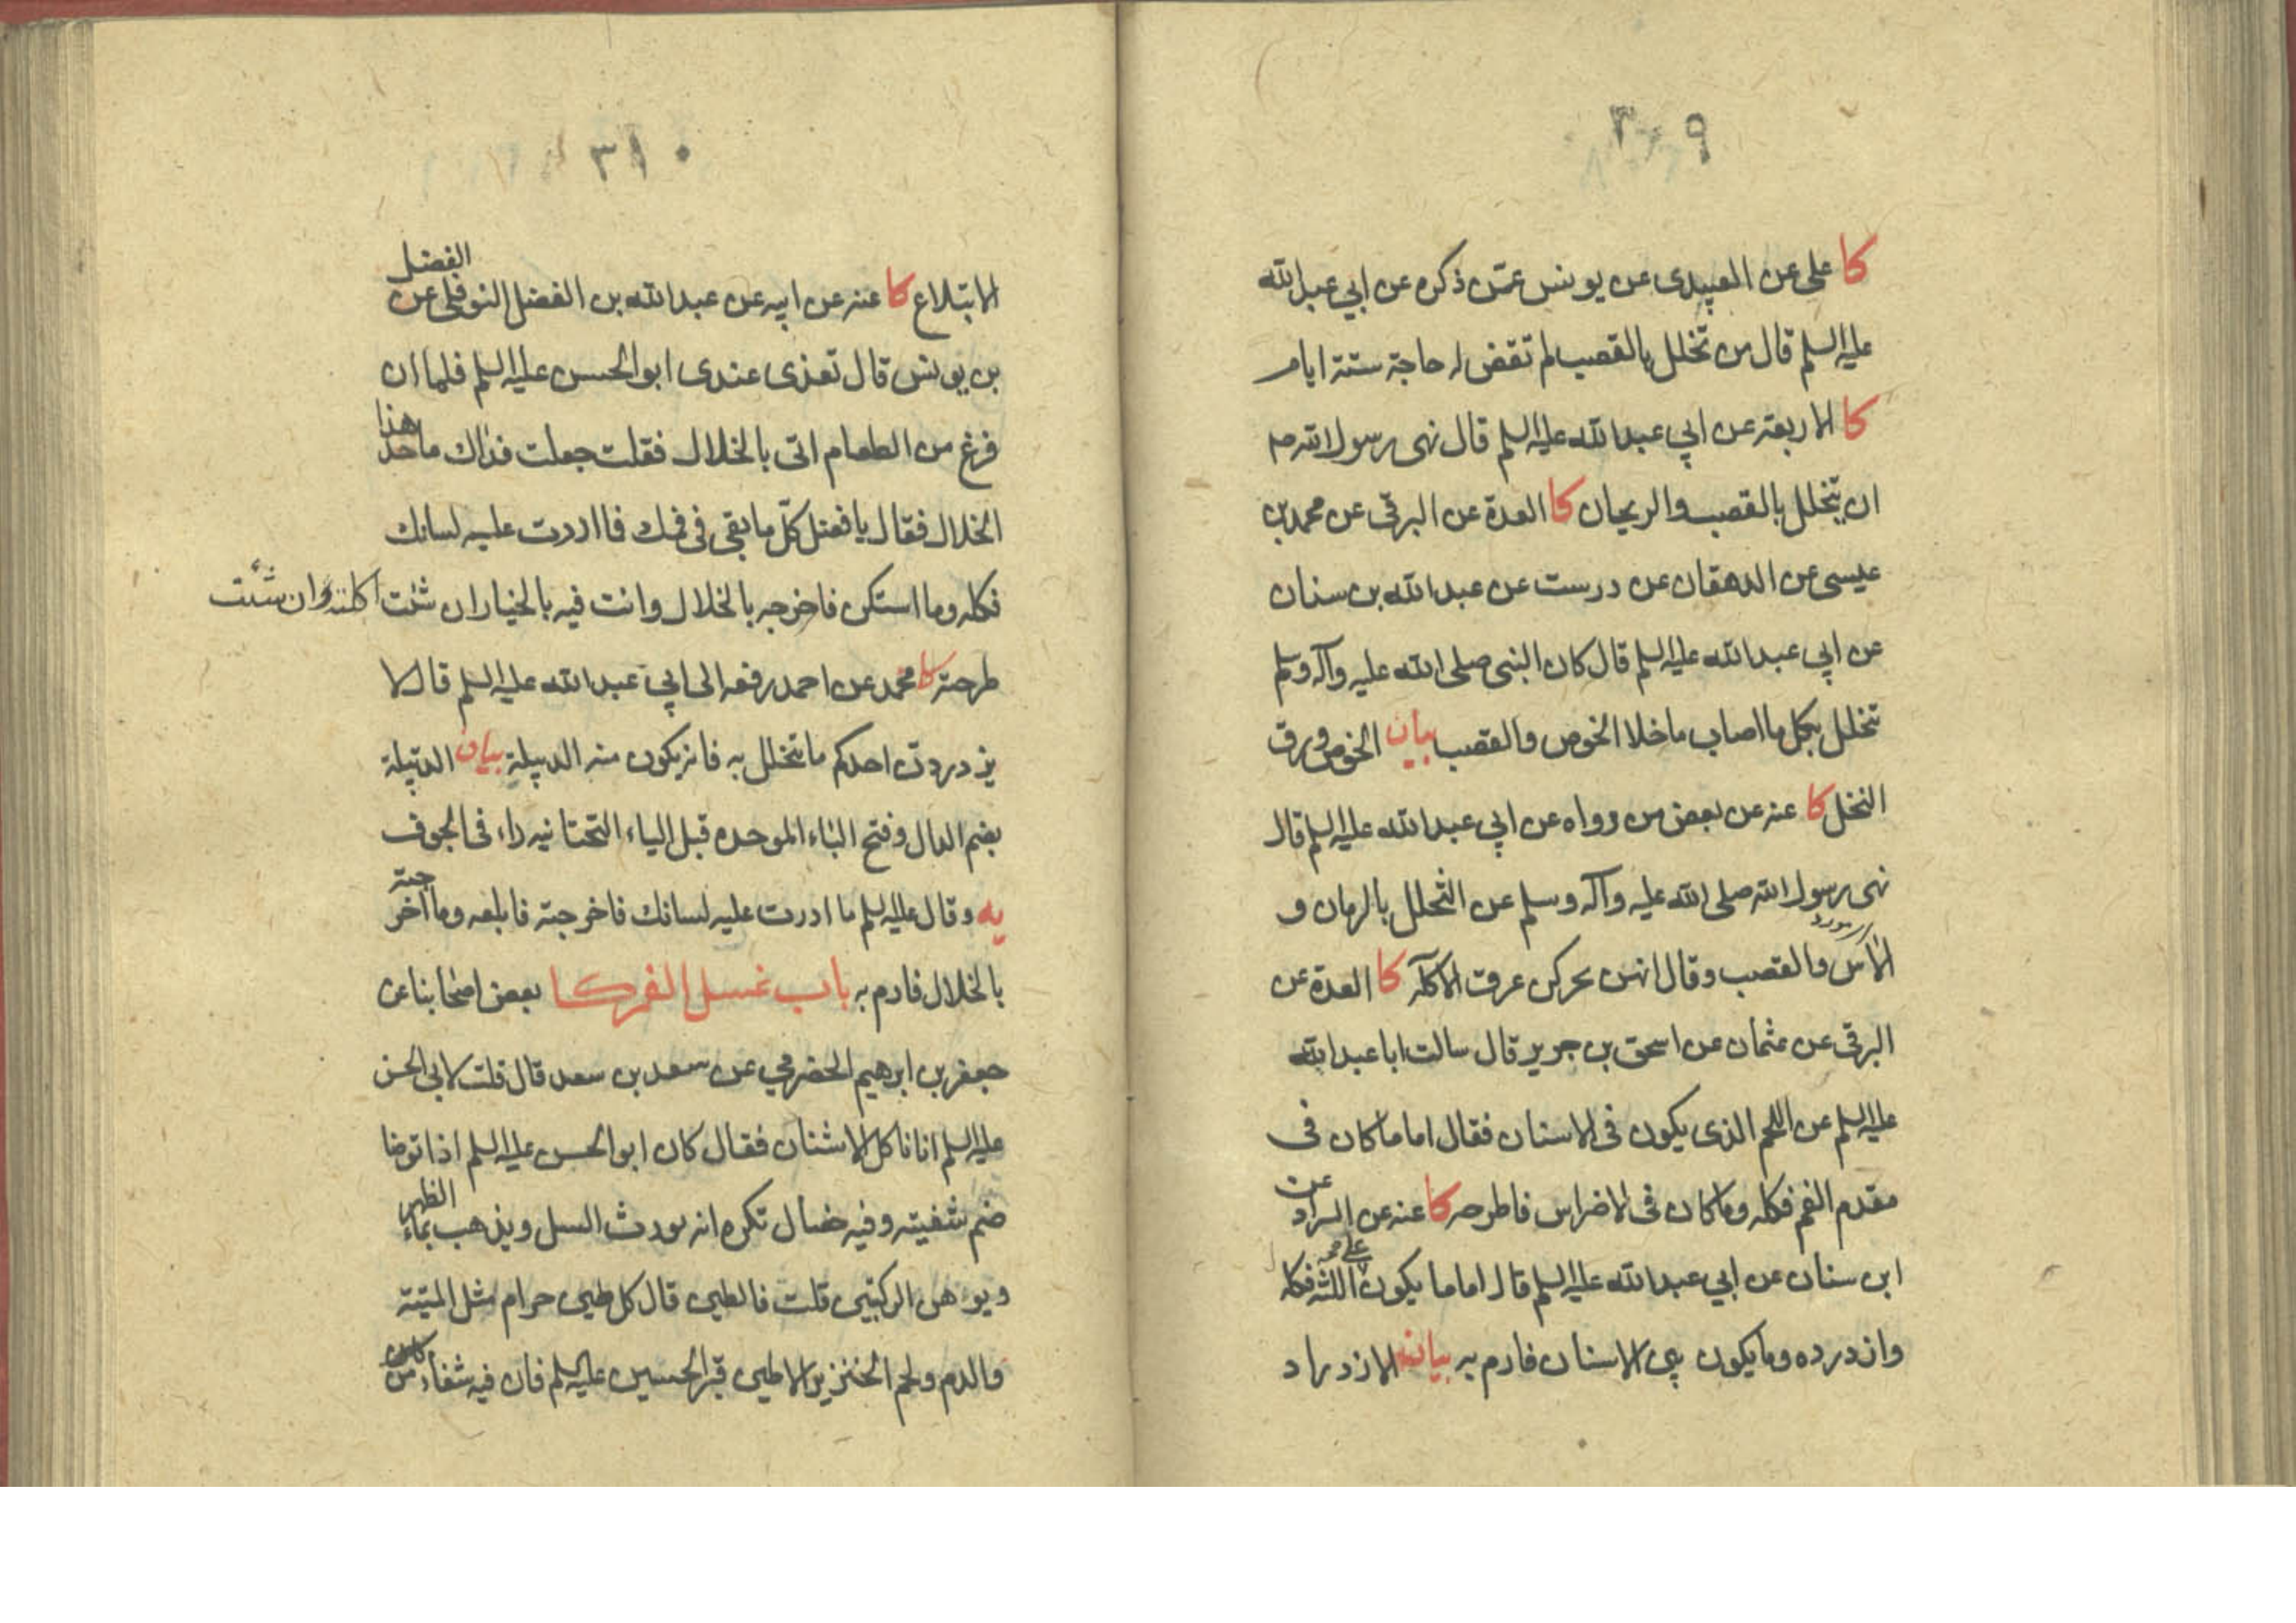 ٣٠٩
كا على عن العبيدى عن يونس عمّن ذكره عن ابي عبد الله
عليه السلم قال من تخلل بالقصب لم تقض له حاجة ستة ايام
كا الاربعة عن ابي عبد الله عليه السلم قال نهى رسول الله صم
ان يتخلل بالقصب والريحان كا العدة عن البرقى عن محمد بن
عيسى عن الدهقان عن درست عن عبد الله بن سنان
عن ابي عبد الله عليه السلم قال كان النبى صلى الله عليه وآله وسلم
تتخلل بكل ما اصاب ماخلا الخوص والقصب بيان الخوص ورق
النخل كا عنه عن بعض من رواه عن ابي عبد الله عليه السلم قال
نهى رسول الله صلى الله عليه وآله وسلم عن التخلل بالرمان و
الآس والقصب وقال انهن يحركن عرق الاكلة كا العدة عن
البرقى عن عثمان عن اسحق بن جرير قال سالت ابا عبد الله
عليه السلم عن اللحم الذى يكون فى الاسنان فقال اما ما كان فى
مقدم الفم فكله وما كان فى الاضراس فاطرحه كا عنه عن السراد عن
ابن سنان عن ابي عبد الله عليه السلم قال اما ما يكون على اللثه فكله
وازدرده وما يكون بين الاسنان فارم به بيان الازدراد
٣١٠
الابتلاع كا عنه عن ابيه عن عبد الله بن الفضل النوفلى عن الفضل
بن يونس قال تغذى عندى ابو الحسن عليه السلم فلما ان
فرغ من الطعام اتى بالخلال فقلت جعلت فداك ما حد هذا
الخلال فقال يا فضل كلّ ما بقى فى فمك فما ادرت عليه لسانك
فكله وما استكن فاخرجه بالخلال وانت فيه بالخيار ان شئت اكلته وان شئت
طرحته كا محمد عن احمد رفعه الى ابي عبد الله عليه السلم قال لا
يزدردن احدكم ما يتخلل به فانه يكون منه الدبيلة بيان الدبيلة
بضم الدال وفتح الباء الموحده قبل الياء التحتانيه داء فى الجوف
يه وقال عليه السلم ما ادرت عليه لسانك فاخرجته فابلعه وما اخرجته
بالخلال فارم به باب غسل الفم كا بعض اصحابنا عن
جعفر بن ابرهيم الحضرمي عن سعد بن سعد قال قلت لابى الحسن
عليه السلم انا ناكل الاشنان فقال كان ابو الحسن عليه السلم اذا توضا
ضم شفيته وفيه خصال تكره انه يورث السل ويذهب بماء الظهر
ويوهن الركبتين قلت فالطين قال كل طين حرام مثل الميتة
والدم ولحم الخنزير الا طين قبر الحسين عليه السلم فان فيه شفاء من كل